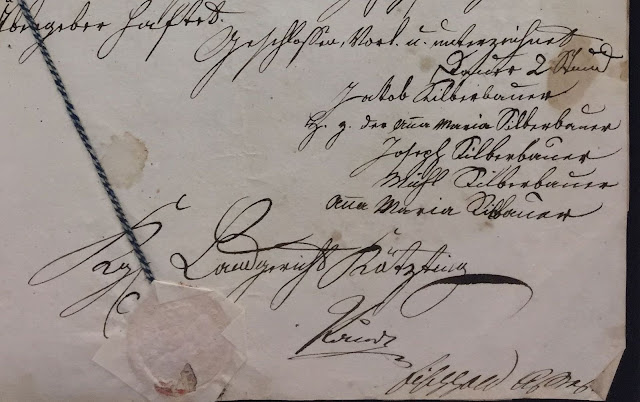 Übergeber haftet.
Geschlossen, Vorl. u. unterzeichnet
Dauer 2 Stund
Jakob Silberbauer
H. z. der Anna Maria Silberbauer
Joseph Silberbauer
Michl Silberbauer
Anna Maria Silbauer
Kgl Landgericht Kötzting